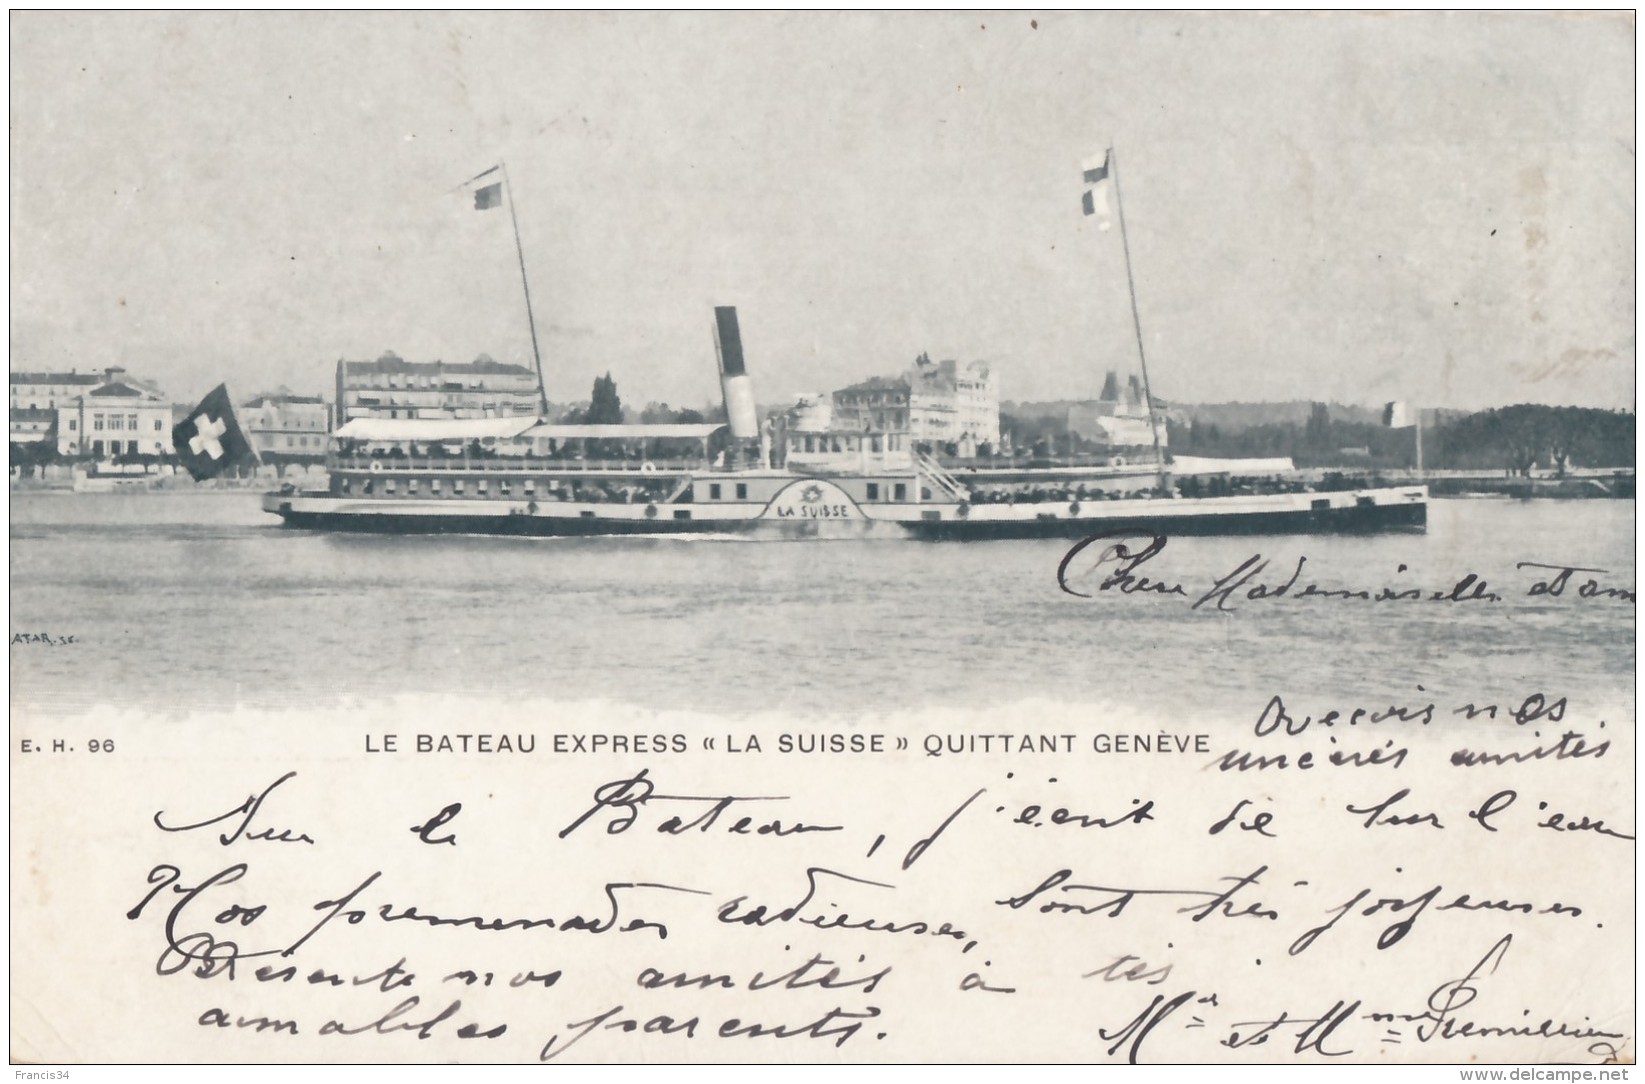 LA SUISSE
Chère Mademoiselle et am
ATAR. SC.
reçois nos
E. H. 96
LE BATEAU EXPRESS « LA SUISSE » QUITTANT GENÈVE
sincères amitiés
Sur le Bateau, j'écris de sur l'eau
Nos promenades radieuses, sont très joyeuses.
Présente nos amitiés à tes
aimables parents.
Mr et Mme
Francis34
delcampe.net